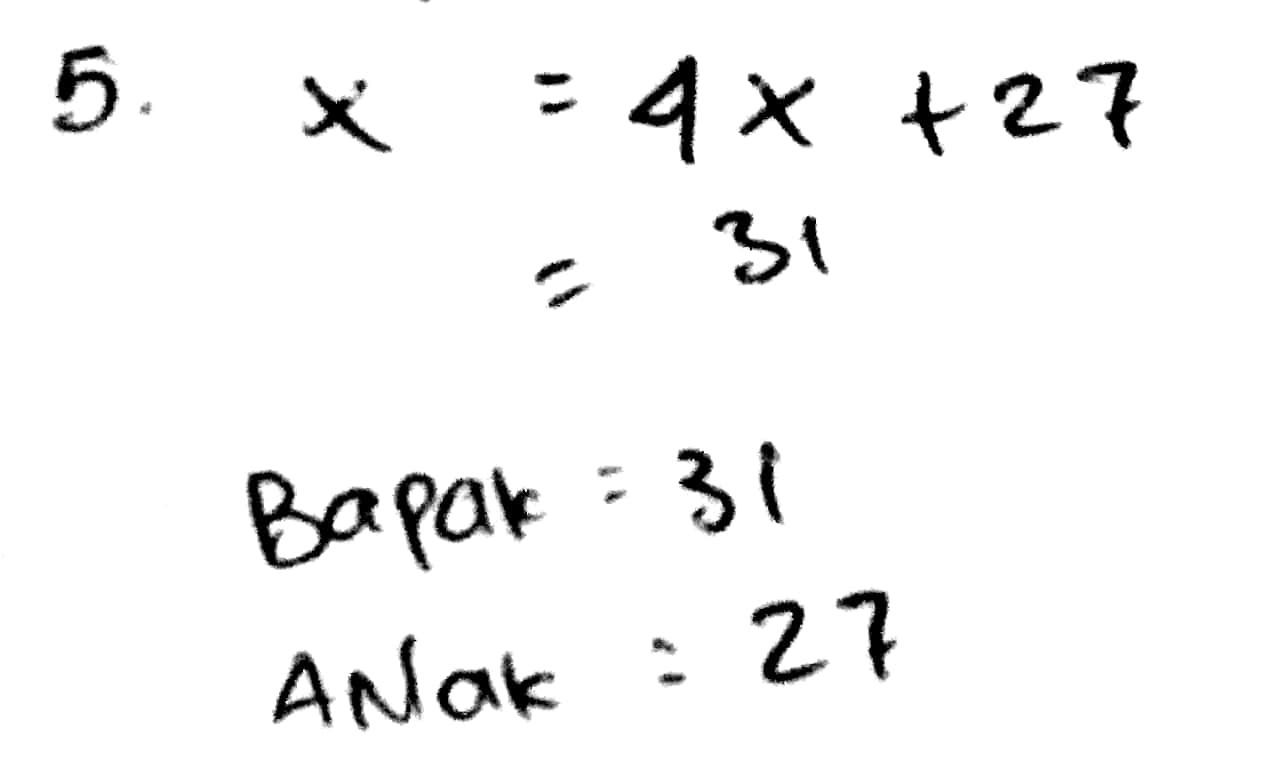 5. x = 4x + 27
= 31
Bapak = 31
ANak = 27